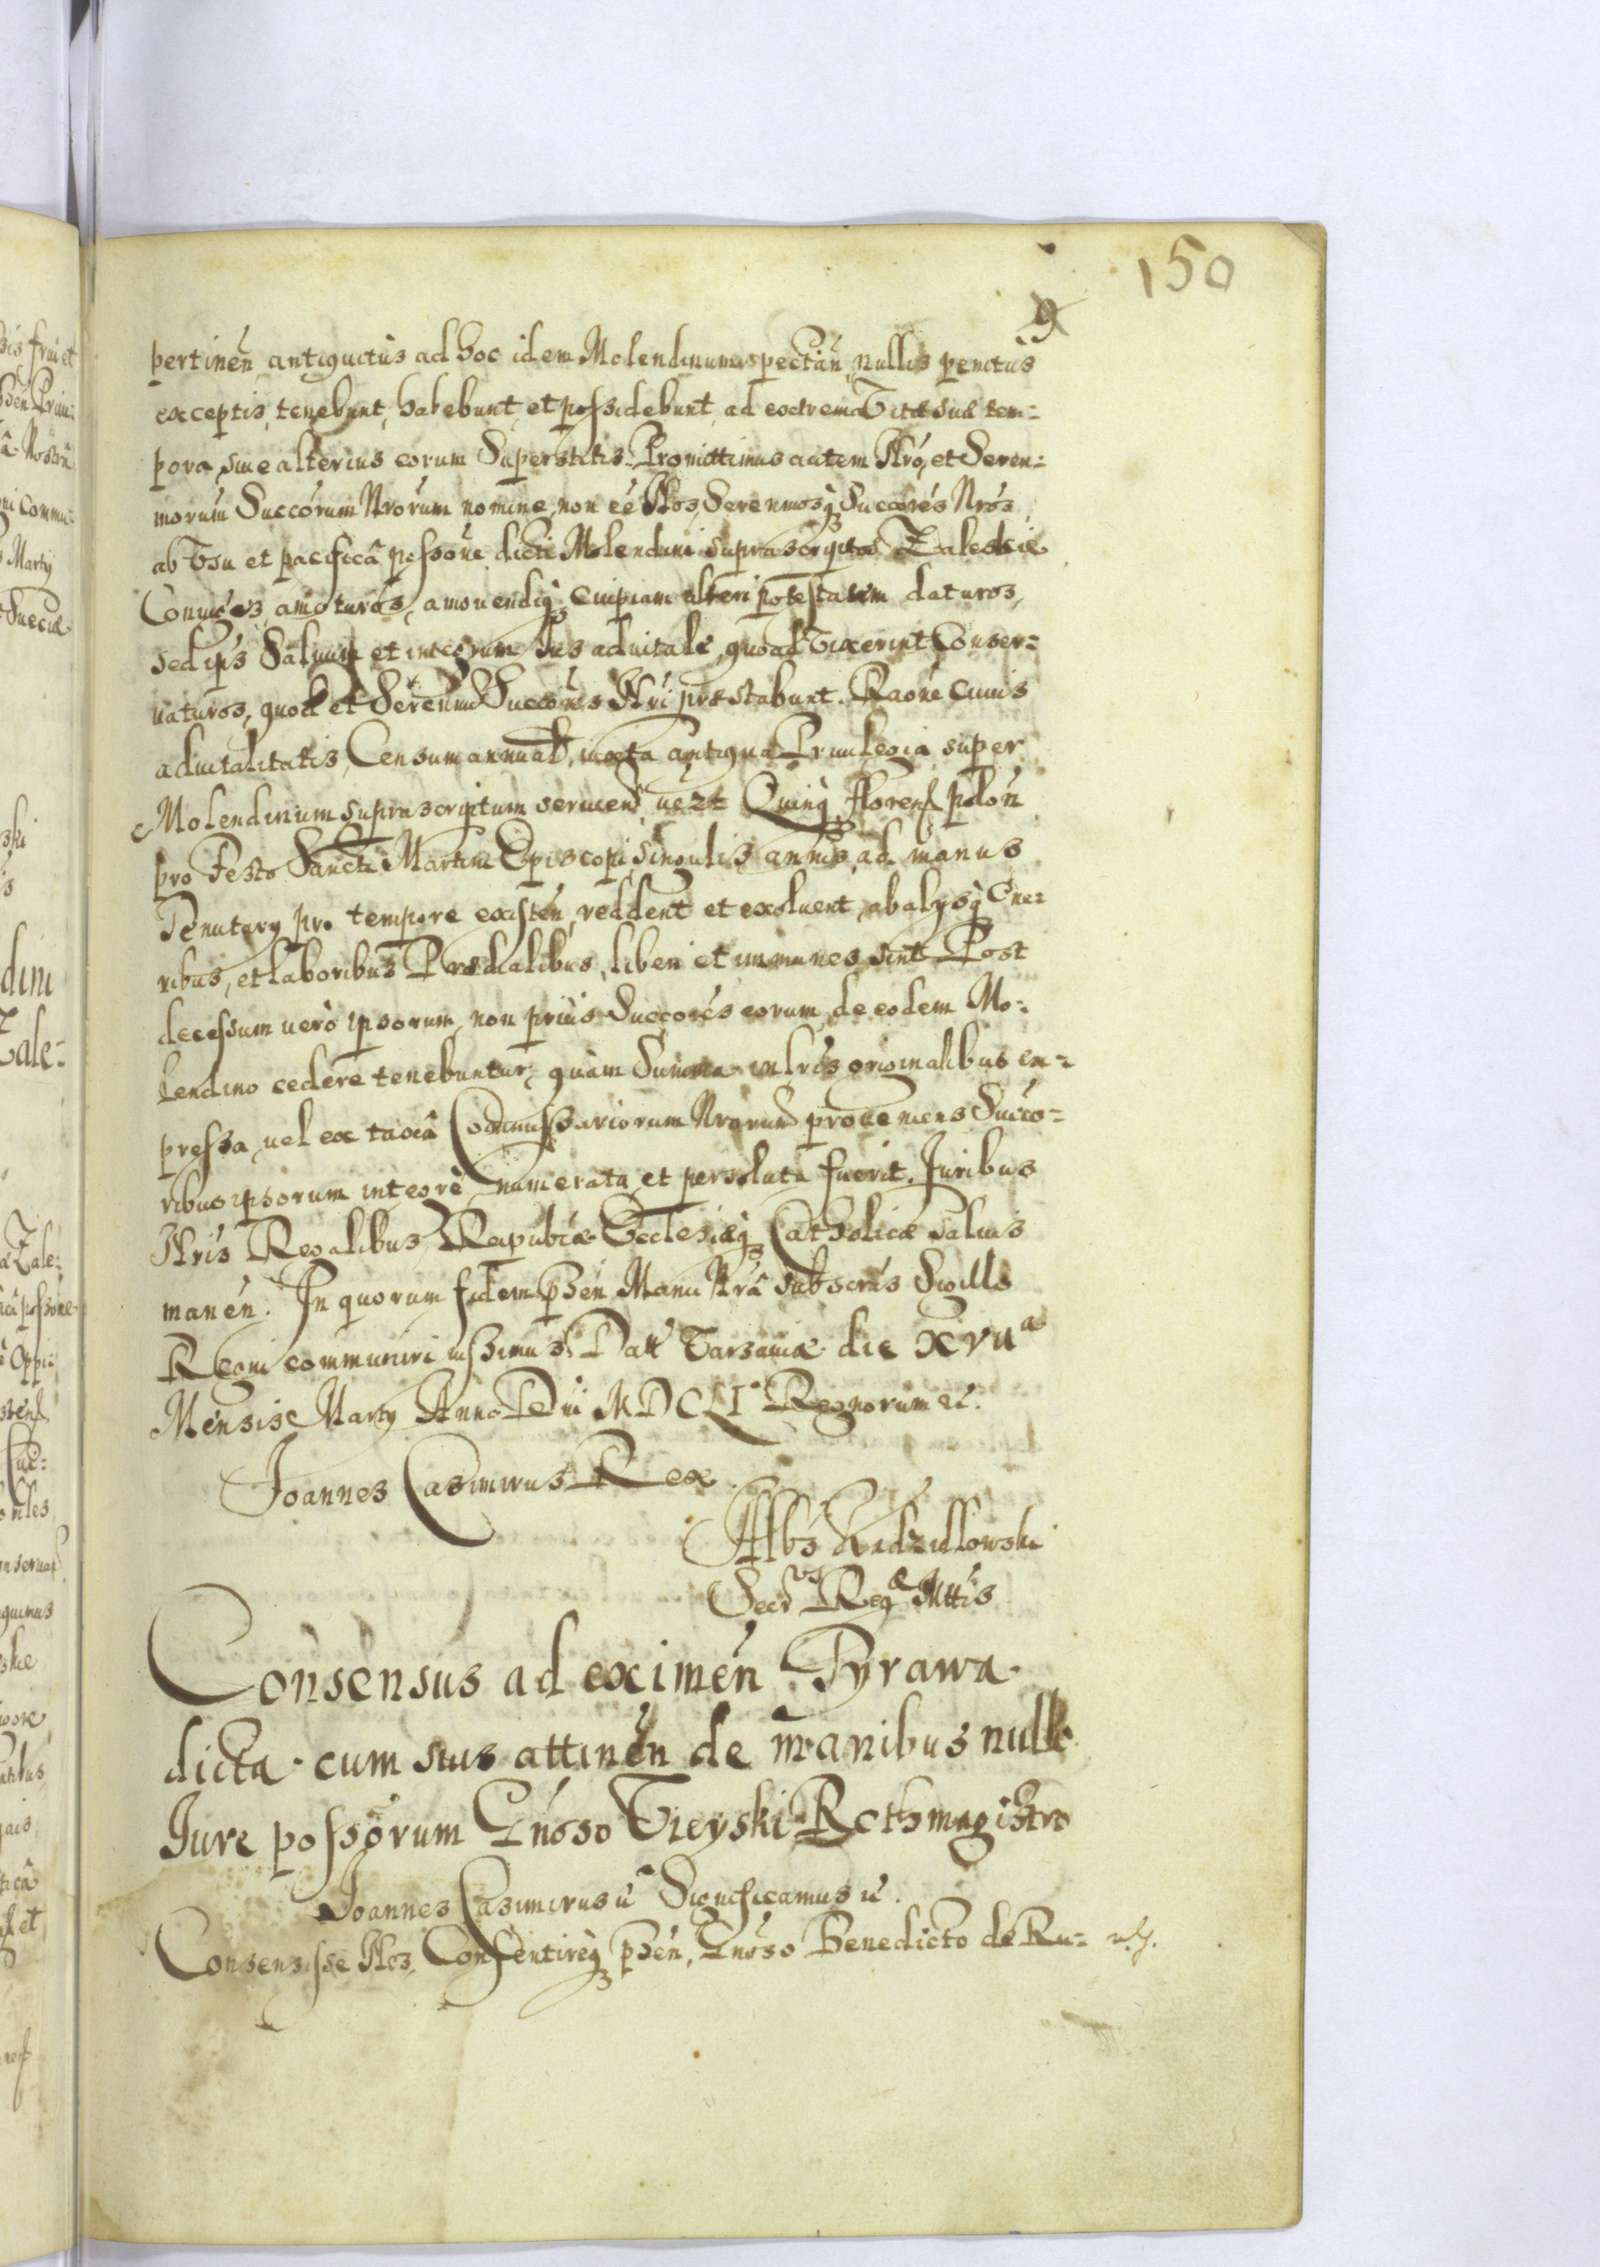 150
9
pertinen̄ antiquitùs ad hoc idem Molendinum spectān, nullis penitùs
exceptis, tenebunt, habebunt, et possidebunt, ad extrema Vitæ suæ tem=
pora, siue alterius eorum Superstitis. Promittimus autem Nrō, et Seren=
morum Succōrum Nrōrum nomine, non eē Nos, Serenmosq̢ Succōres Nrōs
ab Vsu et pacificâ possōne dicti Molendini supra scriptos Zaleskie
Coniuges amoturos, amouendiq̢ cuipiam alteri potestatem daturos,
sed ip̄s Saluum et integrum Ius aduitale, quoad Vixerint Conser=
uaturos, quod et Serenmi Succōres Nrī præstabunt. Raōne cuius
aduitalitatis, Censum annual̄, iuxta antiqua Priuilegia super
Molendinum supra scriptum seruien̄, uczt Quinq̢ floren̄ polōn
pro Festo Sancti Martini Episcopi, singulis annis, ad manus
Tenutarÿ pro tempore existēn, reddent et exsoluent, ab alÿsq̢ One=
ribus, et laboribus Prædialibus, liberi et immunes sint. Post
decessum uerò ipsorum, non priùs Succōres eorum, de eodem Mo=
lendino cedere tenebuntur, quàm Summa in lrīs originalibus ex=
pressa, uel ex taxâ Commissariorum Nrōrum proueniens Succo=
ribus ipsorum integrè numerata, et persoluta fuerit. Iuribus
Nrīs Regalibus, Reipubcæ Ecclesiæq̢ Catholicæ saluis
manēn. In quorum fidem pn̄ Manu Nrā subscrīs Sigillo
Regni communiri iussimus. Datt Varsauiæ die XVIIa
Mensis Martÿ Anno Dnī MDCLI° Regnorum etc̄.
Joannes Casimirus Rex
Albs Kadzidlowski
Secrus Regæ Mttis
Consensus ad eximēn Tyrawa
dicta cum suis attinēn de manibus nullo
Iure possōrum Gn̄oso Vieyski Rothmagistro
Joannes Casimirus etc̄ Significamus etc̄.
Consensisse Nos, Consentireq̢ pn̄, Gn̄oso Benedicto de Ru=